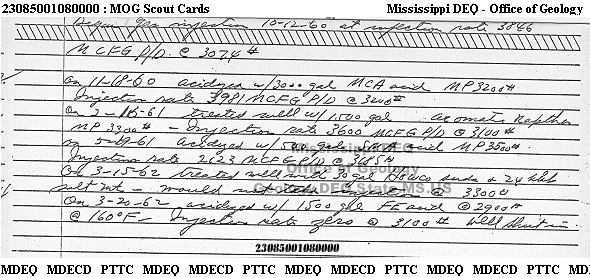 23085001080000 : MOG Scout Cards Mississippi DEQ - Office of Geology
Began gas injection 10-12-60 at injection rate 3846
MCFG P/D @ 3074#
On 11-18-60 acidized w/3000 gal MCA acid MP3200#
Injection rate 3981 MCFG P/D @ 3200#
On 2-16-61 treated well w/1500 gal Aromatic Naptha
MP 3300# - Injection rate 3600 MCFG P/D @ 3100#
5-19-61 acidized w/500 gal acid MP 3500#
Injection rate 2123 MCFG P/D @ 3485#
On 3-15-62 treated well with 30 gal suds + 24 bbls
salt wt - would not take injection @ 3300#
On 3-20-62 acidized w/1500 gal FE acid @ 2900#
@ 160°F - Injection rate zero @ 3100# Well Shut in.
Mississippi DEQ
Office of Geology
Geology.DEQ.State.MS.US
23085001080000
MDEQ MDECD PTTC MDEQ MDECD PTTC MDEQ MDECD PTTC MDEQ MDECD PTTC MD